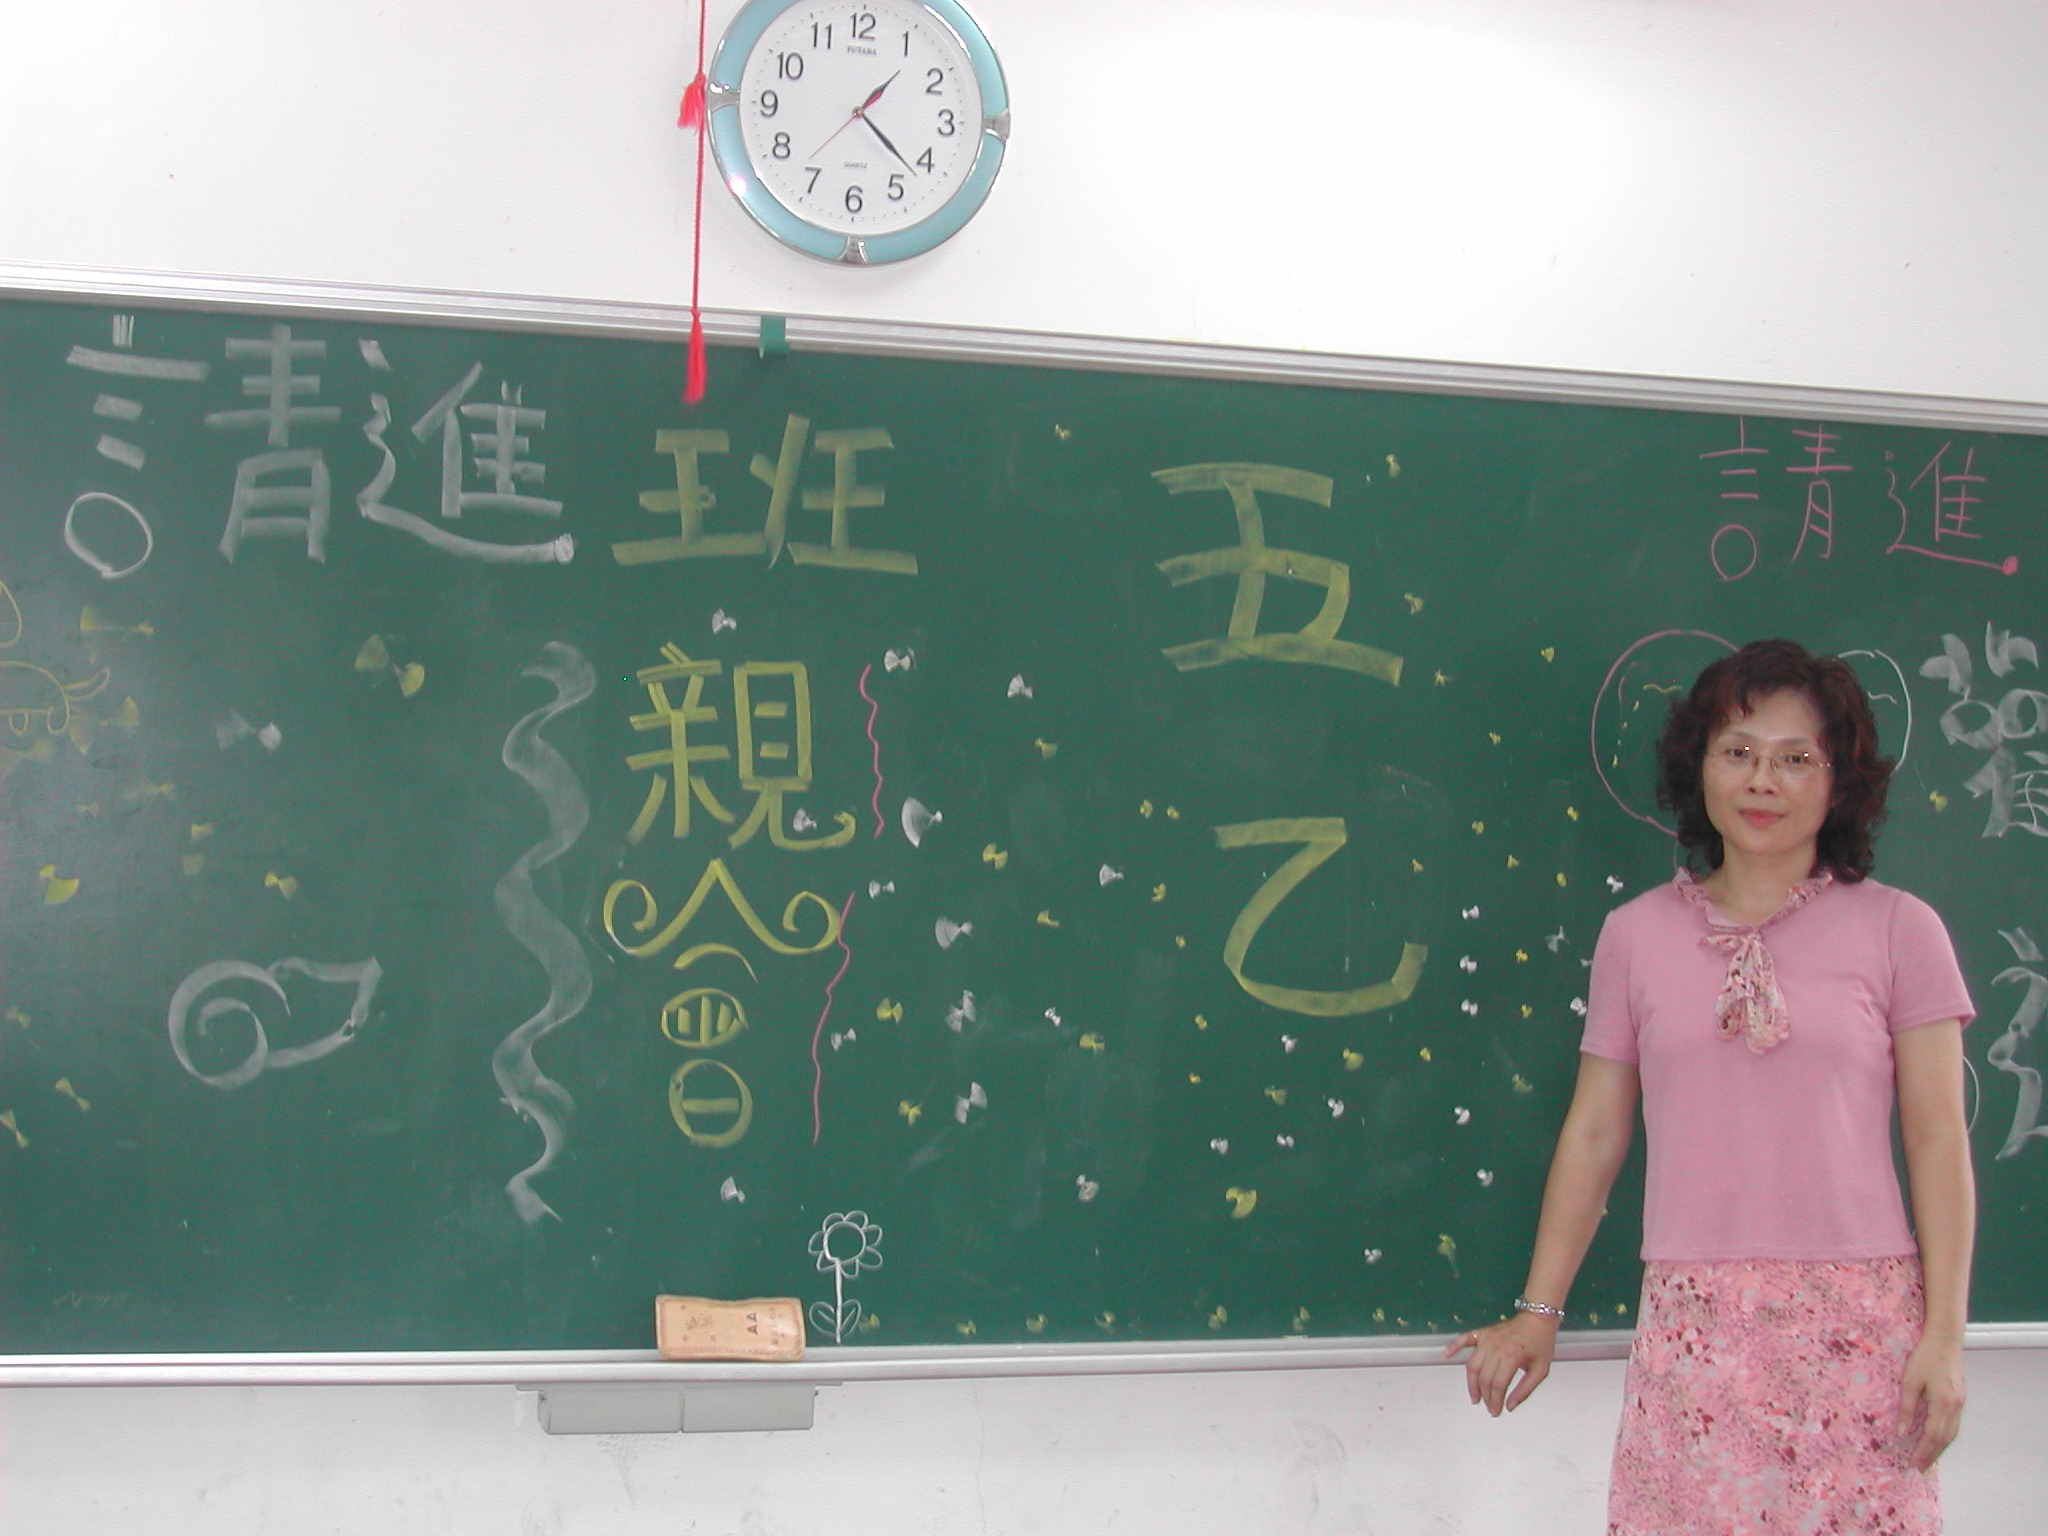 12
1
2
3
4
5
6
7
8
9
10
11
FUTABA
QUARTZ
請進
五乙
班親會
請進
AA